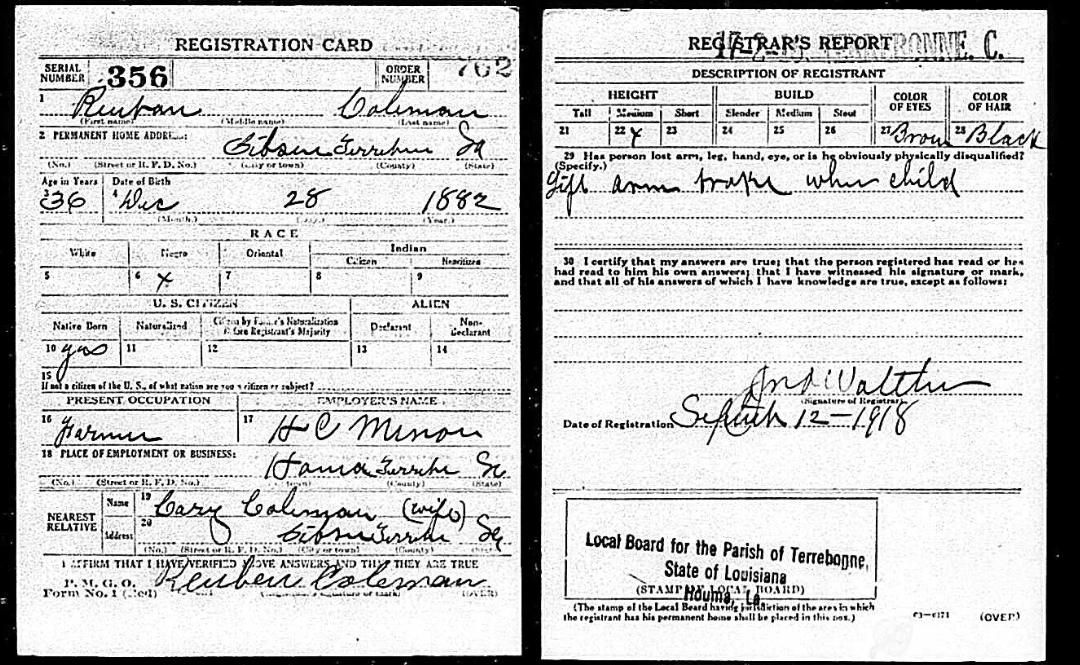 REGISTRATION CARD
SERIAL NUMBER 356
ORDER NUMBER 762
1 Reuban Coleman
(First name) (Middle name) (Last name)
2 PERMANENT HOME ADDRESS:
Gibson Terrebne La
(No.) (Street or R. F. D. No.) (City or town) (County) (State)
Age in Years Date of Birth
3 36 4 Dec 28 1882
(Month.) (Day.) (Year.)
RACE
White Negro Oriental Indian
Citizen Noncitizen
5 6 x 7 8 9
U. S. CITIZEN ALIEN
Native Born Naturalized Citizen by Father's Naturalization Before Registrant's Majority Declarant Non-Declarant
10 yes 11 12 13 14
15
If not a citizen of the U. S., of what nation are you a citizen or subject?
PRESENT OCCUPATION EMPLOYER'S NAME
16 Farmer 17 H C Minor
18 PLACE OF EMPLOYMENT OR BUSINESS:
Houma Terrebne La
(No.) (Street or R. F. D. No.) (County) (State)
NEAREST RELATIVE Name 19 Cary Coleman (wife)
Address 20 Gibson Terrebne La
(No.) (Street or R. F. D. No.) (City or town) (County)
I AFFIRM THAT I HAVE VERIFIED ABOVE ANSWERS AND THAT THEY ARE TRUE
P. M. G. O.
Form No. 1 (Red) Reuben Coleman
(OVER)
REGISTRAR'S REPORT
DESCRIPTION OF REGISTRANT
HEIGHT BUILD COLOR OF EYES COLOR OF HAIR
Tall Medium Short Slender Medium Stout
21 22 x 23 24 25 26 27 Brown 28 Black
29 Has person lost arm, leg, hand, eye, or is he obviously physically disqualified?
(Specify.)
arm broke when child
30 I certify that my answers are true; that the person registered has read or has
had read to him his own answers; that I have witnessed his signature or mark,
and that all of his answers of which I have knowledge are true, except as follows:
(Signature of Registrar)
Date of Registration Septbr 12-1918
Local Board for the Parish of Terrebonne,
State of Louisiana
(STAMP OF LOCAL BOARD)
Houma, La
(The stamp of the Local Board having jurisdiction of the area in which
the registrant has his permanent home shall be placed in this box.)
63-6171 (OVER)